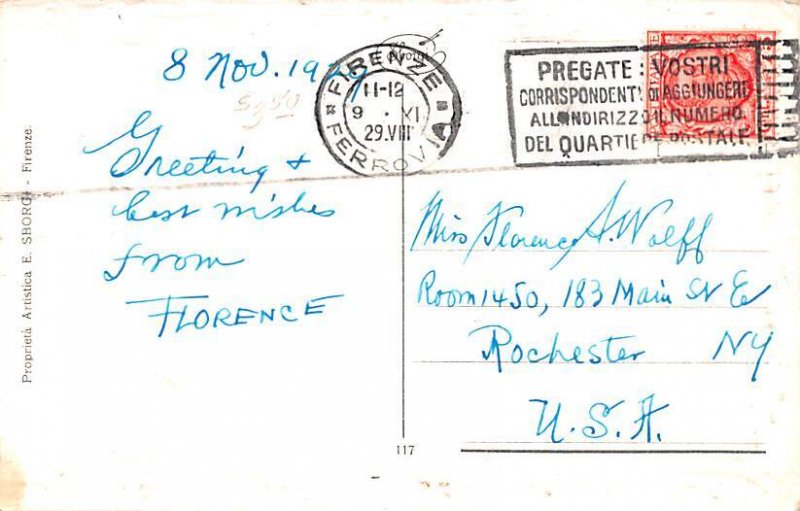 8 Nov. 1929
$3.50
Greeting &
best wishes
from
FLORENCE
FIRENZE
11-12
9 . XI
29.VIII
FERROVIA
PREGATE : VOSTRI
CORRISPONDENTI DI AGGIUNGERE
ALL INDIRIZZO IL NUMERO
DEL QUARTIERE POSTALE
Miss Florence S. Wolff
Room 1450, 183 Main St E
Rochester NY
U.S.A.
Proprietà Artistica E. SBORGI - Firenze.
117